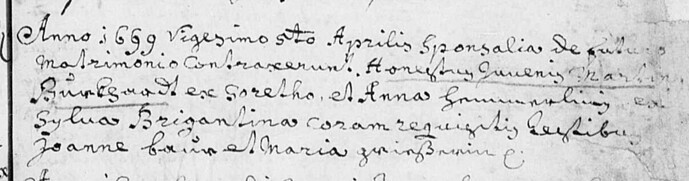 Anno 1699 Vigesimo 6to Aprilis Sponsalia de futuro
Matrimonio Contraxerunt Honestus Juvenis Martin
Burkhardt ex Soretho, et Anna Hemmerlin ex
Sylva Brigantina coram requisitis testibus
Joanne baur et Maria